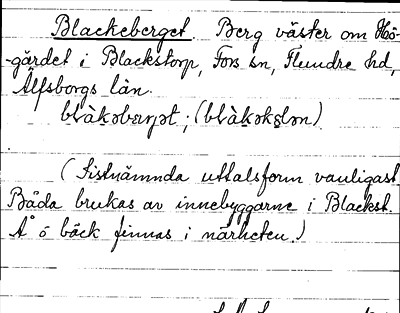 Blackeberget. Berg väster om Hö-
-gärdet i Blackstorp, Fors sn, Flundre hd,
Älfsborgs län.
blàkəbærjət; (blàkəkələn)
(Sistnämnda uttalsform vanligast
Båda brukas av innebyggarne i Blackst.
Å o bäck finnas i närheten.)